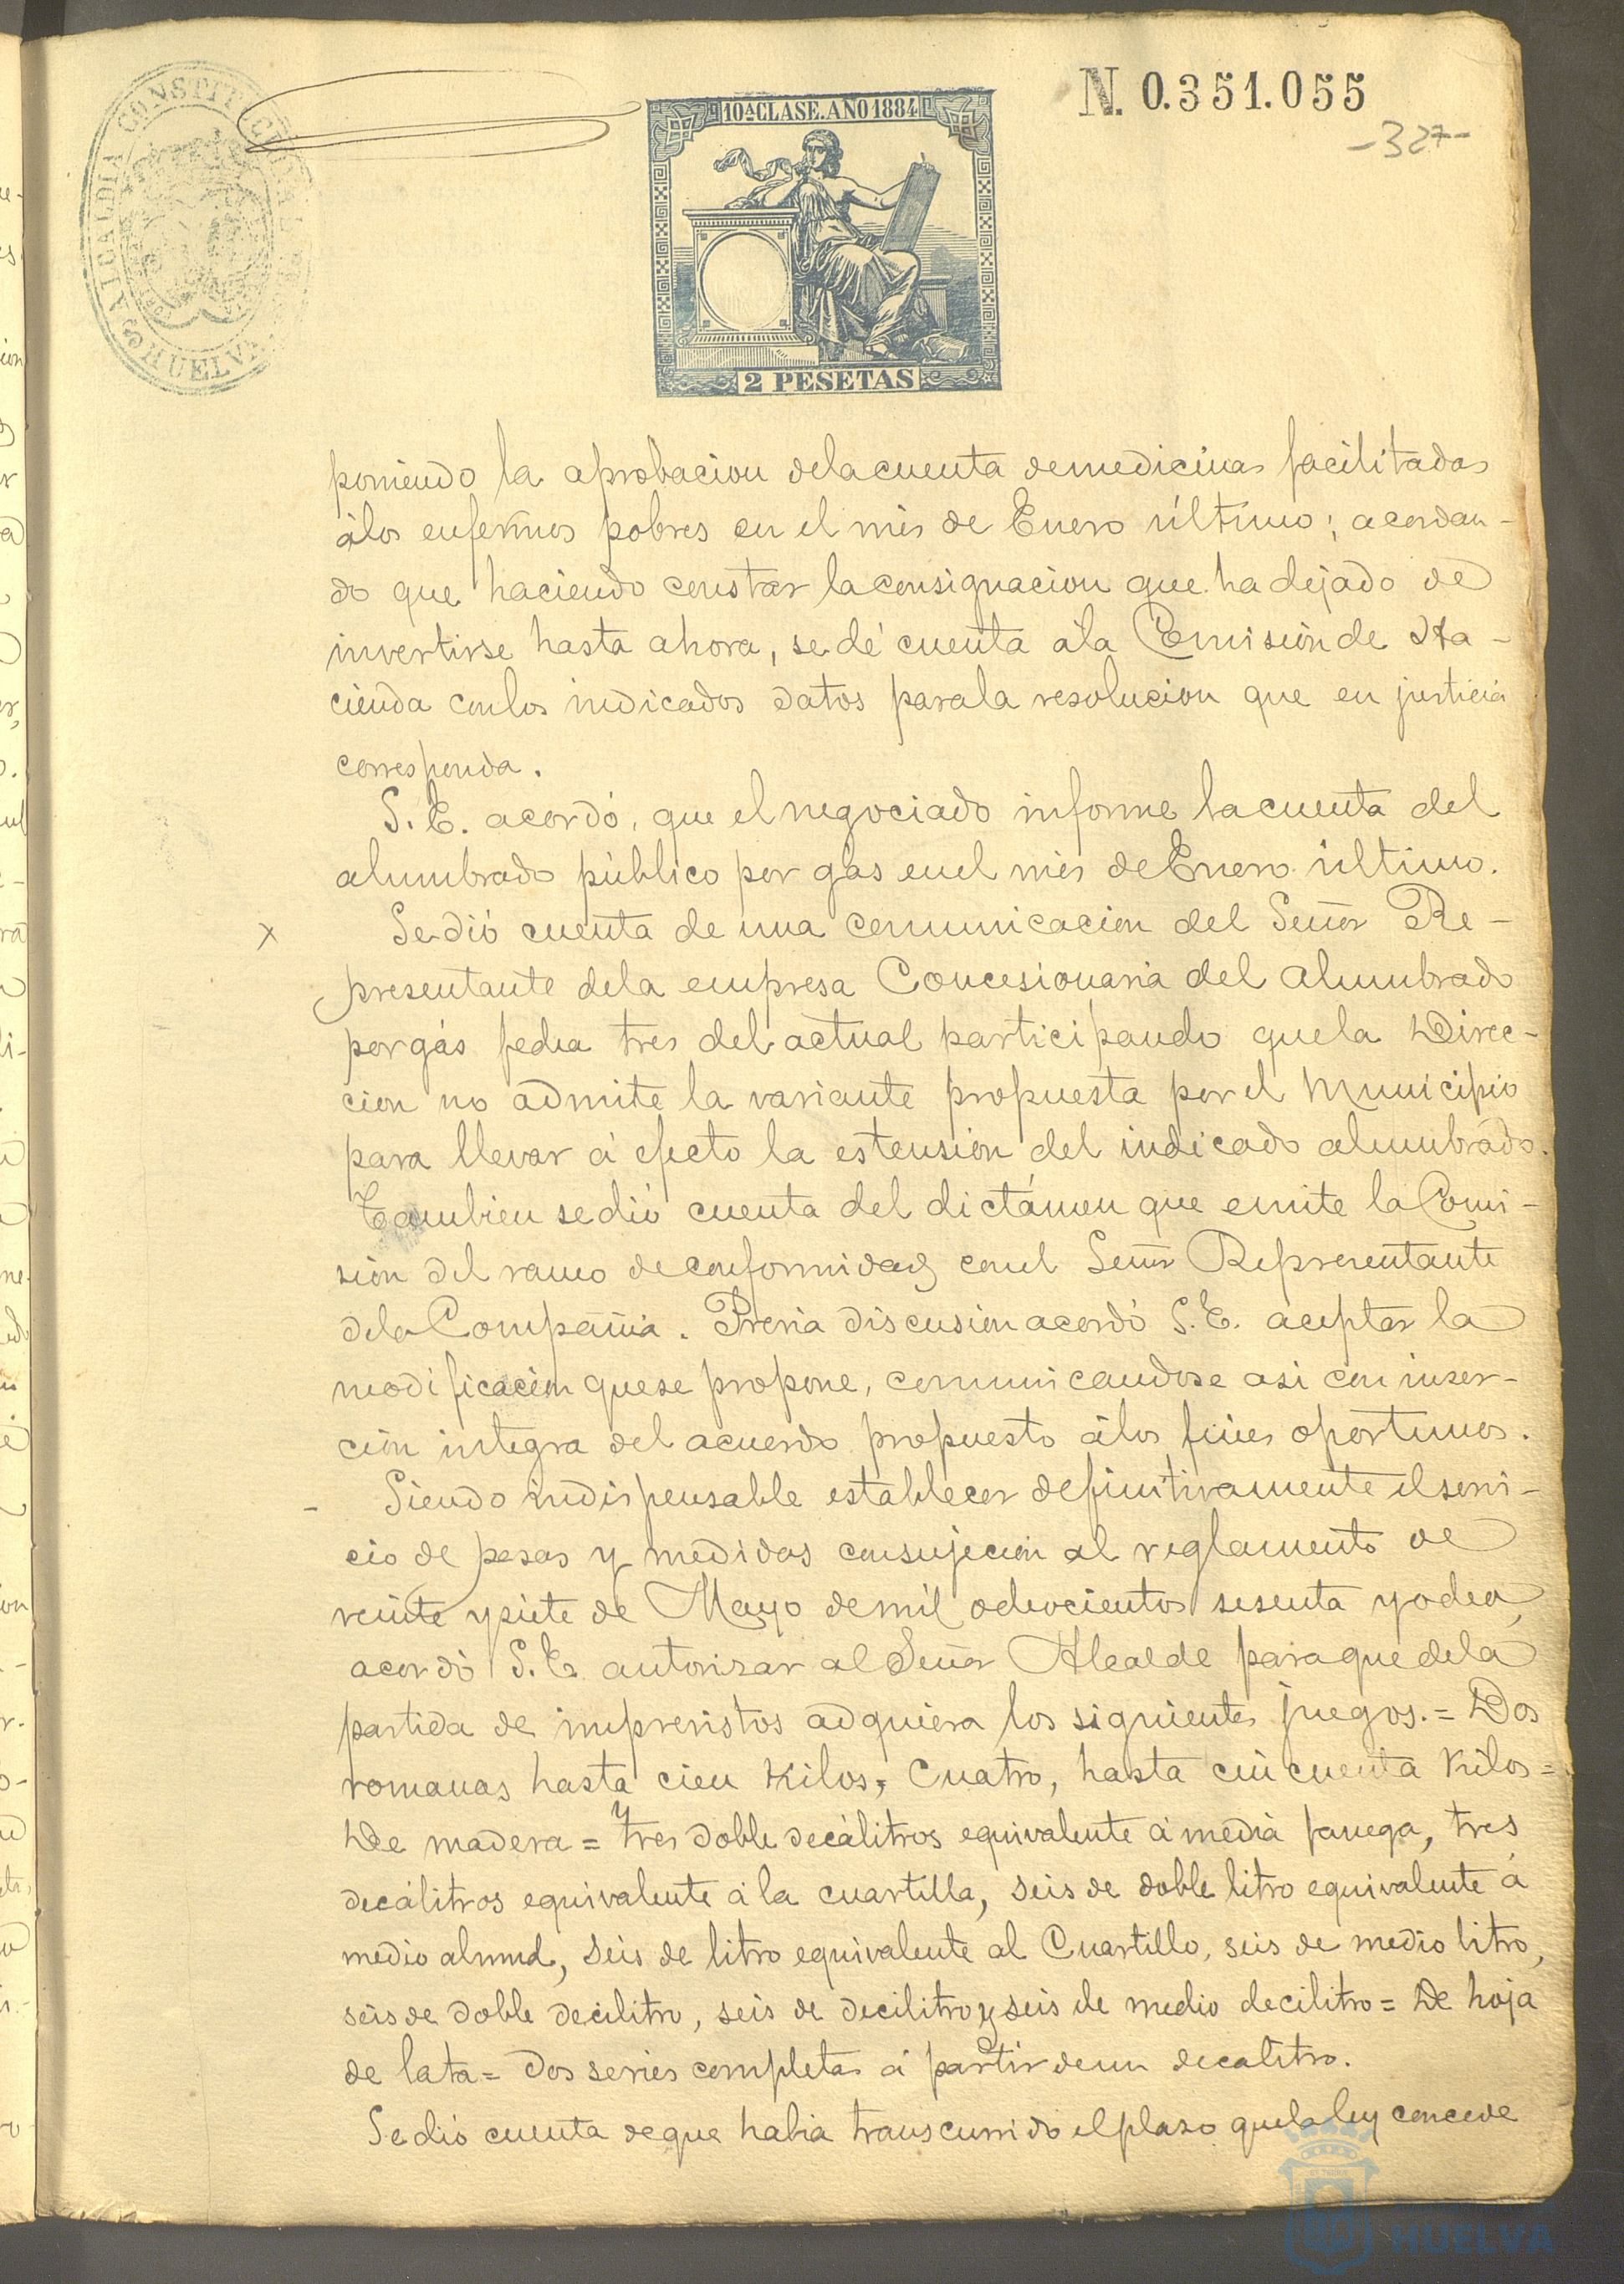 N. 0.351.055
-327-
ALCALDIA CONSTITUCIONAL
HUELVA
10ª CLASE. AÑO 1884
2 PESETAS
poniendo la aprobacion dela cuenta de medicinas facilitadas
álos enfermos pobres en el mes de Enero último; acordan-
do que haciendo constar la consignacion que ha dejado de
invertirse hasta ahora, se dé cuenta ála Comision de Ha-
cienda con los indicados datos para la resolucion que en justicia
corresponda.
S. E. acordó, que el negociado informe la cuenta del
alumbrado público por gas en el mes de Enero último.
x Se dió cuenta de una comunicacion del Señor Re-
presentante dela empresa Concesionaria del alumbrado
por gás fecha tres del actual participando que la Direc-
cion no admite la variante propuesta por el Municipio
para llevar á efecto la estension del indicado alumbrado.
Tambien se dió cuenta del dictámen que emite la Comi-
sion del ramo de conformidad con el Señor Representante
dela Compañia. Previa discusion acordó S. E. aceptar la
modificacion que se propone, comunicandose asi con inser-
cion integra del acuerdo propuesto álos fines oportunos.
- Siendo indispensable establecer definitivamente el servi-
cio de pesas y medidas con sujecion al reglamento de
veinte y siete de Mayo de mil ochocientos sesenta y ocho,
acordó S. E. autorizar al Señor Alcalde para que dela
partida de imprevistos adquiera los siguientes juegos.= Dos
romanas hasta cien Kilos, y Cuatro, hasta cincuenta Kilos=
De madera = tres doble decálitros equivalente á media fanega, tres
decálitros equivalente á la cuartilla, seis de doble litro equivalente á
medio almud, seis de litro equivalente al Cuartillo, seis de medio litro,
seis de doble decilitro, seis de decilitro y seis de medio decilitro = De hoja
de lata = dos series completas á partir de un decalitro.
Se dió cuenta de que habia transcurrido el plazo que la ley concede
HUELVA